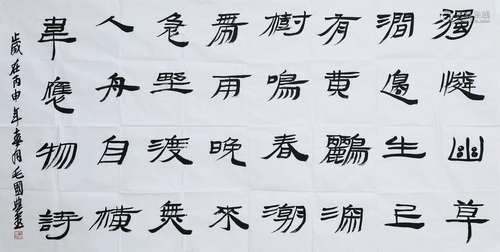 獨憐幽草
澗邊生上
有黃鸝深
樹鳴春潮
帶雨晚來
急野渡無
人舟自橫
韋應物詩
歲在丙申年春月毛國典書